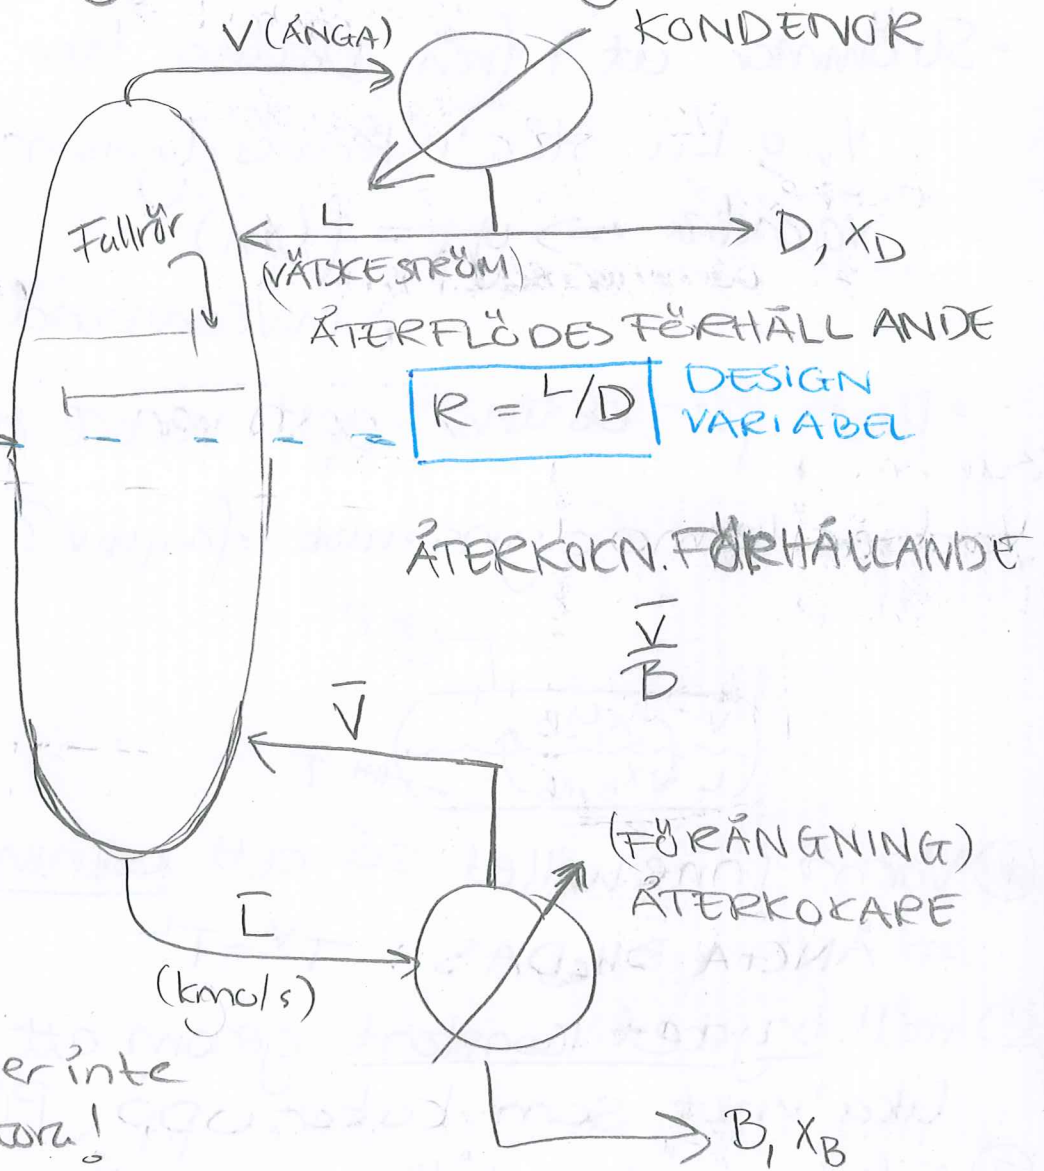 V (ÅNGA)
KONDENOR
Fallrör
L
D, XD
(VÄTSKESTRÖM)
ÅTERFLÖDESFÖRHÅLLANDE
R = L/D
DESIGN
VARIABEL
ÅTERKOKN. FÖRHÅLLANDE
V̅
B
V̅
(FÖRÅNGNING)
ÅTERKOKARE
L̅
(kmol/s)
er inte
B, XB